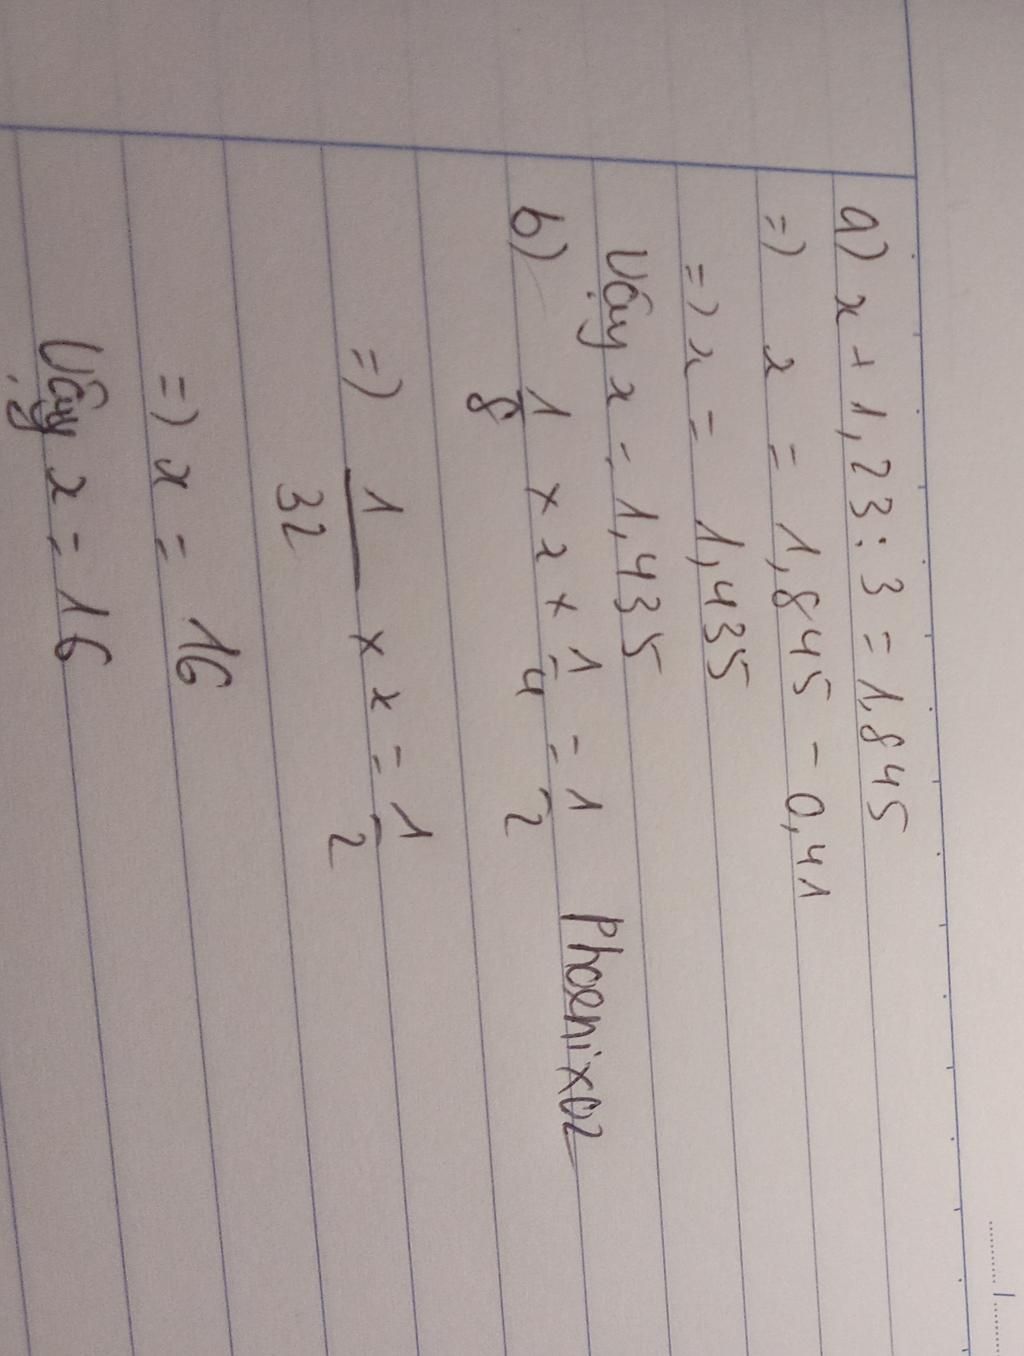 a) x + 1,23 : 3 = 1,845
=) x = 1,845 - 0,41
=) x = 1,435
Vậy x = 1,435
b) 1/8 × x × 1/4 = 1/2 Phoenix02
=) 1/32 × x = 1/2
=) x = 16
Vậy x = 16